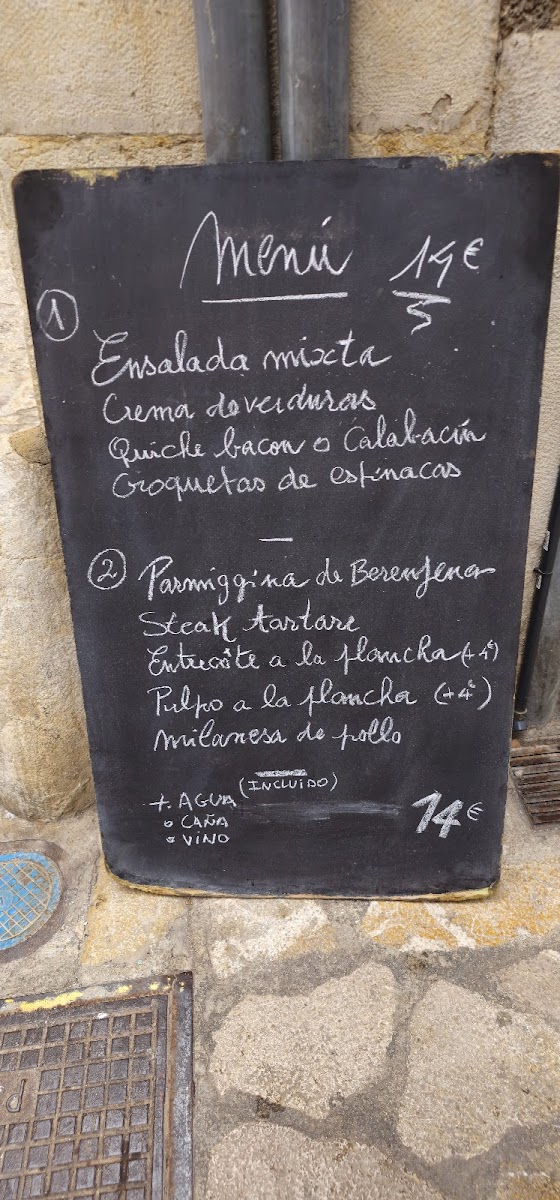 Menú 14€
1
Ensalada mixta
Crema de verduras
Quiche bacon o Calabacín
Croquetas de espinacas
2 Parmiggina de Berenjena
Steak tartare
Entrecôte a la plancha (+4€)
Pulpo a la plancha (+4€)
milanesa de pollo
(INCLUIDO)
+ AGUA
o CAÑA
o VINO
14€